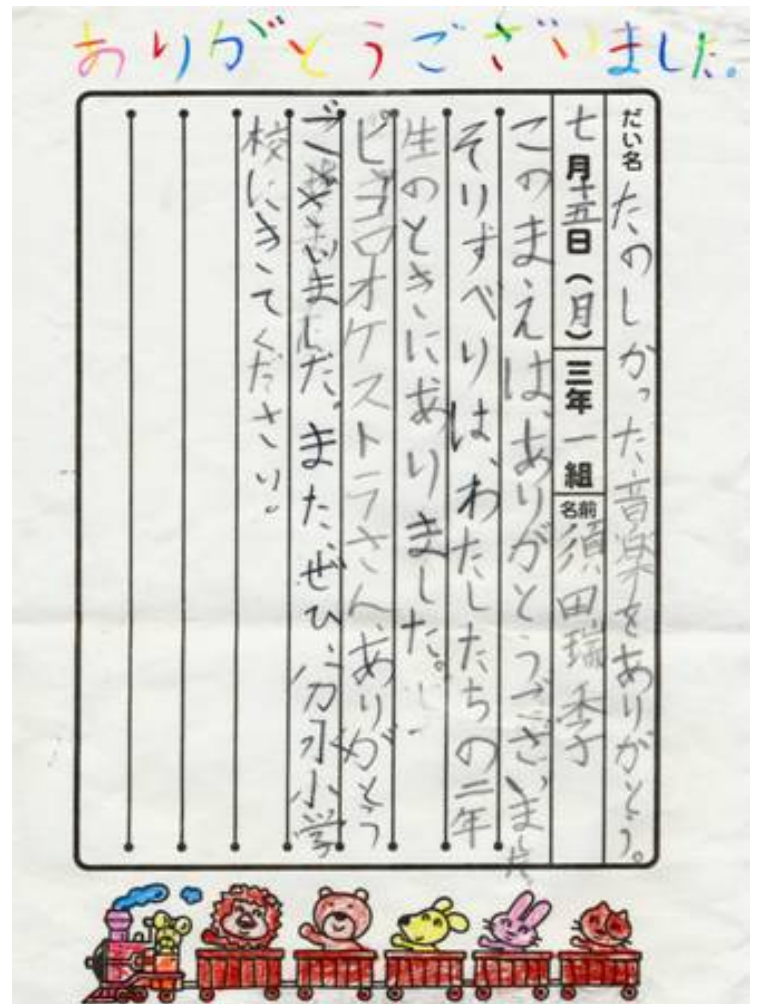 ありがとうございました。
だい名 たのしかった音楽をありがとう。
七月十五日(月)三年一組 名前 須田瑞季
このまえは、ありがとうございました。
そりすべりは、わたしたちの二年
生のときにありました。
ピゴロオケストラさん、ありがとう
ございました。また、ぜひ、分水小学
校にきてください。